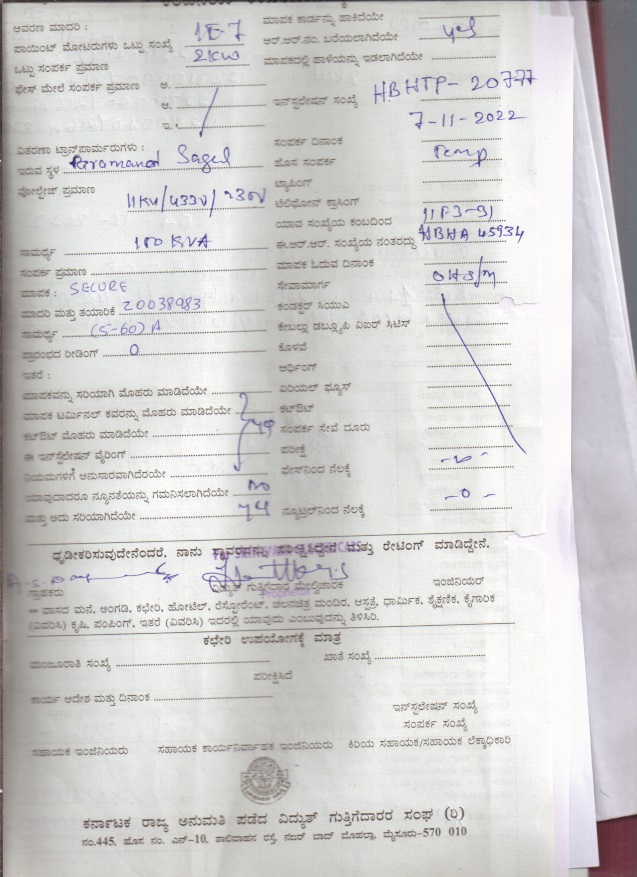 ಆವರಣ ಮಾದರಿ : ಮಾಪಕ ಕಾರ್ಡನ್ನು ಹಾಕಿದೆಯೇ
ಪಾಯಿಂಟ್ ಮೋಟರುಗಳು ಒಟ್ಟು ಸಂಖ್ಯೆ ಆರ್.ಆರ್.ನಂ. ಬರೆಯಲಾಗಿದೆಯೇ yes
ಒಟ್ಟು ಸಂಪರ್ಕ ಪ್ರಮಾಣ 2KW ಮಾಪಕದಲ್ಲಿ ಹಾಳೆಯನ್ನು ಇಡಲಾಗಿದೆಯೇ
ಫೇಸ್ ಮೇಲೆ ಸಂಪರ್ಕ ಪ್ರಮಾಣ ಅ.
ಆ. ಇನ್‌ಸ್ಟಲೇಷನ್ ಸಂಖ್ಯೆ HBHTP-20777
ಇ. 7-11-2022
ವಿತರಣಾ ಟ್ರಾನ್ಸ್‌ಫಾರ್ಮರುಗಳು : ಸಂಪರ್ಕ ದಿನಾಂಕ
ಇರುವ ಸ್ಥಳ ಹೊಸ ಸಂಪರ್ಕ Temp
ವೋಲ್ಟೇಜ್ ಪ್ರಮಾಣ ಟ್ಯಾಪಿಂಗ್
11KV/433V/230V ಟೆಲಿಫೋನ್ ಕ್ರಾಸಿಂಗ್
ಯಾವ ಸಂಖ್ಯೆಯ ಕಂಬದಿಂದ
ಸಾಮರ್ಥ್ಯ 100 KVA ಈ.ಆರ್.ಆರ್. ಸಂಖ್ಯೆಯ ನಂತರದ್ದು HBHA 45934
ಸಂಪರ್ಕ ಪ್ರಮಾಣ ಮಾಪಕ ಓದುವ ದಿನಾಂಕ
ಮಾಪಕ : SECURE ಸೇವಾಮಾರ್ಗ
ಮಾದರಿ ಮತ್ತು ತಯಾರಿಕೆ 20038983 ಕಂಡಕ್ಟರ್ ಸಿಯುಎ
ಸಾಮರ್ಥ್ಯ (5-60) A ಕೇಬಲ್ಲು ಡಬ್ಲ್ಯೂಪಿ ವಿಐಆರ್ ಸಿಟಿಸ್
ಪ್ರಾರಂಭದ ರೀಡಿಂಗ್ 0 ಕೊಳವೆ
ಇತರೆ : ಅರ್ಥಿಂಗ್
ಮಾಪಕವನ್ನು ಸರಿಯಾಗಿ ಮೊಹರು ಮಾಡಿದೆಯೇ ಏರಿಯಲ್ ಫ್ಯೂಸ್
ಮಾಪಕ ಟರ್ಮಿನಲ್ ಕವರನ್ನು ಮೊಹರು ಮಾಡಿದೆಯೇ ಕಟ್‌ಔಟ್
ಕಟ್‌ಔಟ್ ಮೊಹರು ಮಾಡಿದೆಯೇ ಸಂಪರ್ಕ ಸೇವೆ ದೂರು
ಈ ಇನ್‌ಸ್ಟಲೇಷನ್ ವೈರಿಂಗ್ ಪರೀಕ್ಷೆ
ನಿಯಮಗಳಿಗೆ ಅನುಸಾರವಾಗಿದೆರೆಯೇ ಫೇಸ್‌ನಿಂದ ನೆಲಕ್ಕೆ
ಯಾವುದಾದರೂ ನ್ಯೂನತೆಯನ್ನು ಗಮನಿಸಲಾಗಿದೆಯೇ no
ಮತ್ತು ಅದು ಸರಿಯಾಗಿದೆಯೇ ನ್ಯೂಟ್ರಲ್‌ನಿಂದ ನೆಲಕ್ಕೆ -0-
ಧೃಡೀಕರಿಸುವುದೇನೆಂದರೆ, ನಾನು ಸ್ಥಾವರವನ್ನು ಪರೀಕ್ಷಿಸಿದ್ದೇನೆ ಮತ್ತು ರೇಟಿಂಗ್ ಮಾಡಿದ್ದೇನೆ.
ಗ್ರಾಹಕರು ಗುತ್ತಿಗೆದಾರ ಮೇಲ್ವಿಚಾರಕ ಇಂಜಿನಿಯರ್
= ವಾಸದ ಮನೆ, ಅಂಗಡಿ, ಕಛೇರಿ, ಹೋಟೆಲ್, ರೆಸ್ಟೋರೆಂಟ್, ಚಲನಚಿತ್ರ ಮಂದಿರ, ಆಸ್ಪತ್ರೆ, ಧಾರ್ಮಿಕ, ಶೈಕ್ಷಣಿಕ, ಕೈಗಾರಿಕ
(ವಿವರಿಸಿ) ಕೃಷಿ, ಪಂಪಿಂಗ್, ಇತರೆ (ವಿವರಿಸಿ) ಇದರಲ್ಲಿ ಯಾವುದು ಎಂಬುವುದನ್ನು ತಿಳಿಸಿರಿ.
ಕಛೇರಿ ಉಪಯೋಗಕ್ಕೆ ಮಾತ್ರ
ಮಂಜೂರಾತಿ ಸಂಖ್ಯೆ ಖಾತೆ ಸಂಖ್ಯೆ
ಪರೀಕ್ಷಿಸಿದೆ
ಕಾರ್ಯ ಆದೇಶ ಮತ್ತು ದಿನಾಂಕ
ಇನ್‌ಸ್ಟಲೇಷನ್ ಸಂಖ್ಯೆ
ಸಂಪರ್ಕ ಸಂಖ್ಯೆ
ಸಹಾಯಕ ಇಂಜಿನಿಯರು ಸಹಾಯಕ ಕಾರ್ಯನಿರ್ವಾಹಕ ಇಂಜಿನಿಯರು ಕಿರಿಯ ಸಹಾಯಕ/ಸಹಾಯಕ ಲೆಕ್ಕಾಧಿಕಾರಿ
ಕರ್ನಾಟಕ ರಾಜ್ಯ ಅನುಮತಿ ಪಡೆದ ವಿದ್ಯುತ್ ಗುತ್ತಿಗೆದಾರರ ಸಂಘ (ರಿ)
ನಂ.445, ಹೊಸ ನಂ. ಎನ್-10, ಶಾಲಿವಾಹನ ರಸ್ತೆ, ನಜರ್ ಬಾದ್ ಮೊಹಲ್ಲಾ, ಮೈಸೂರು-570 010